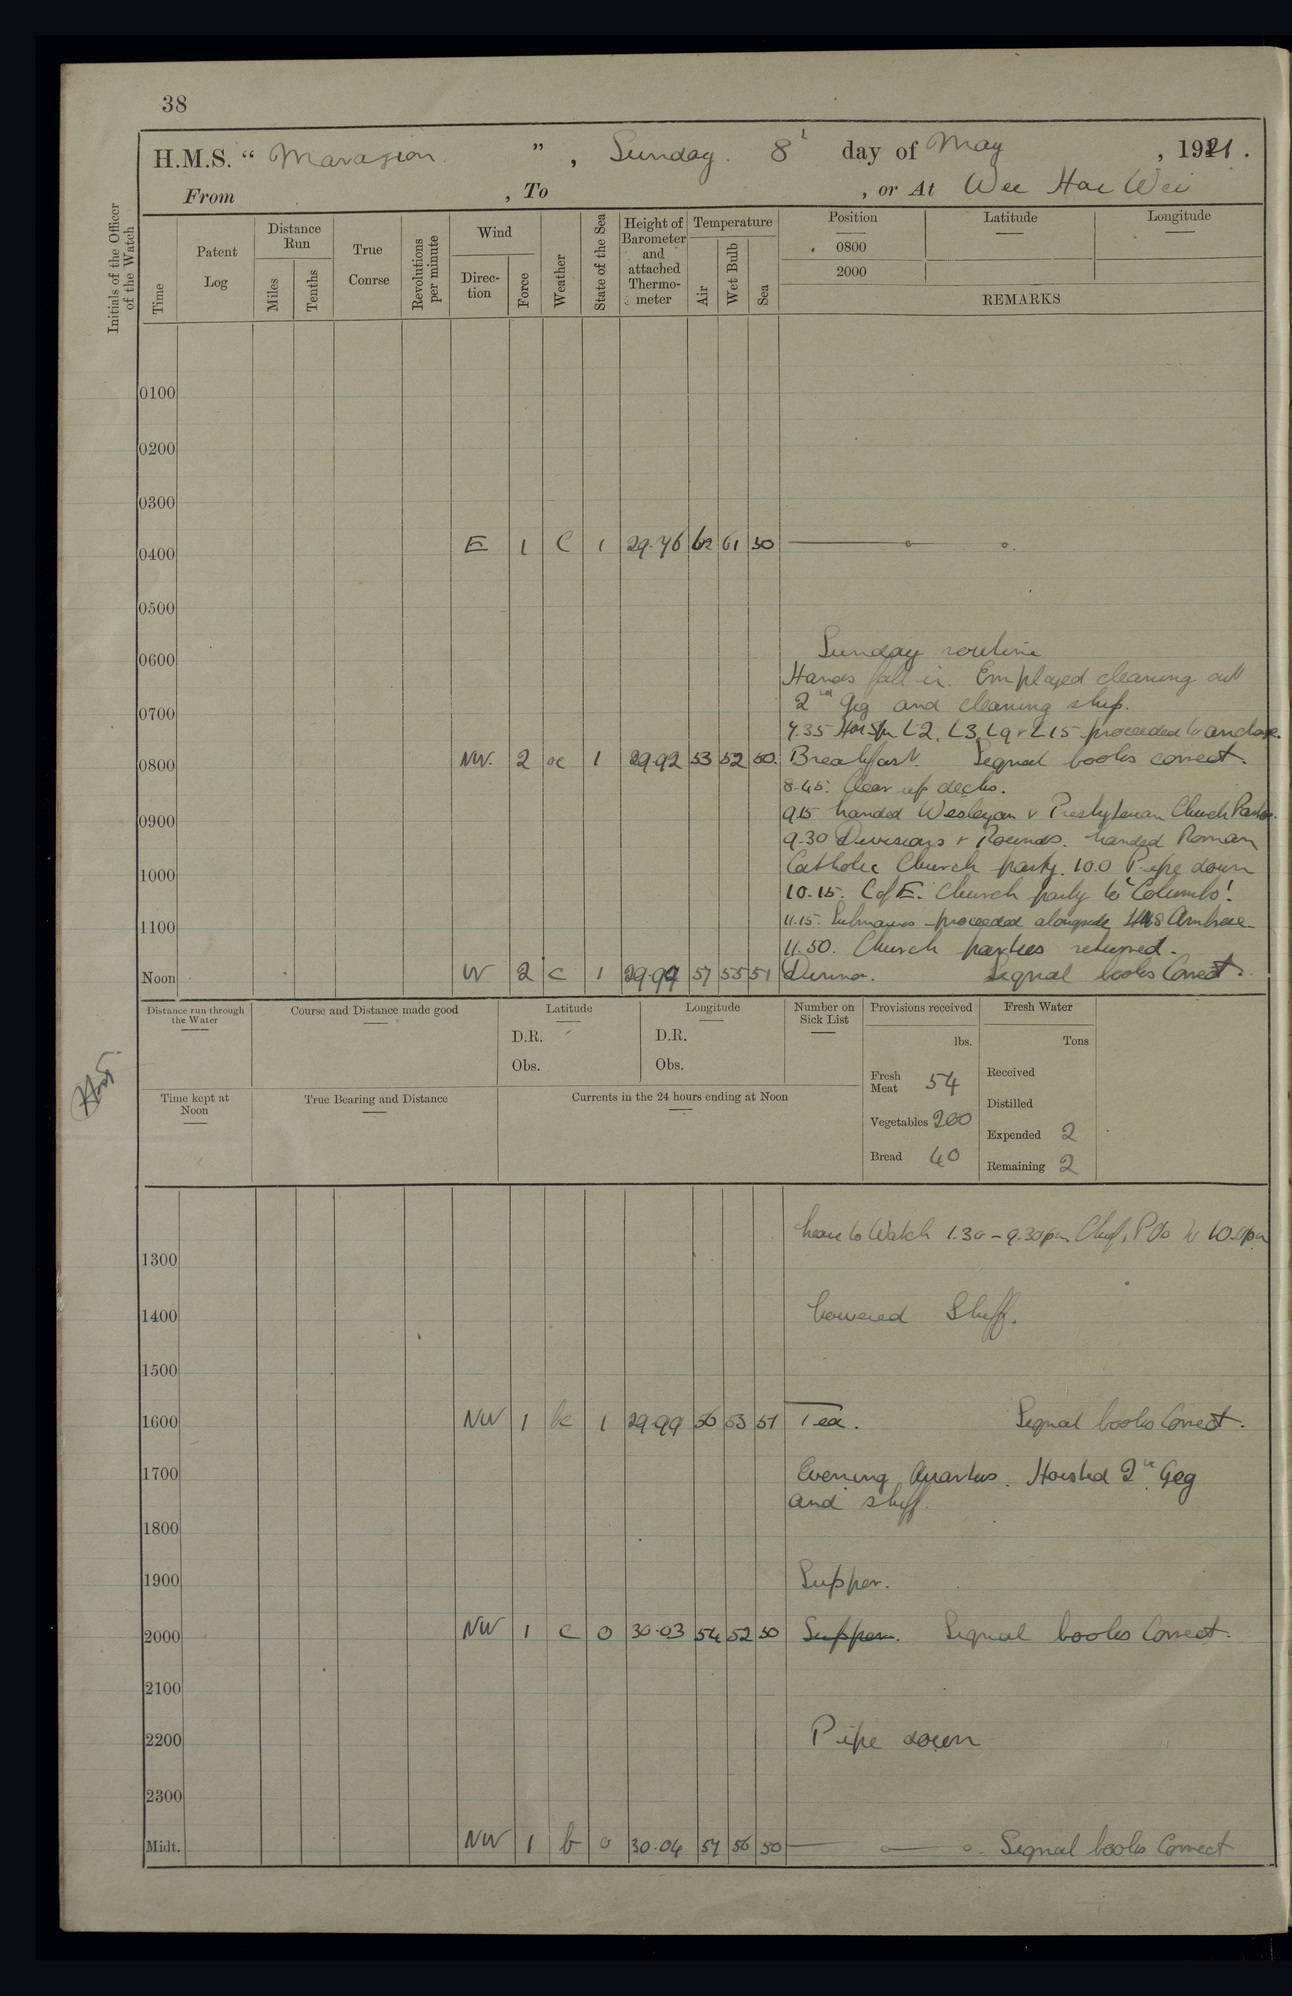 38
H.M.S. “ Marazion ” , Sunday. 8th day of May , 1921 .
From , To , or At Wei Hai Wei
Initials of the Officer of the Watch
Time
Patent Log
Distance Run
Miles
Tenths
True Course
Revolutions per minute
Wind
Direction
Force
Weather
State of the Sea
Height of Barometer and attached Thermometer
Temperature
Air
Wet Bulb
Sea
Position Latitude Longitude
0800
2000
REMARKS
0100
0200
0300
0400 E 1 C 1 29.76 62 61 50
0500
Sunday routine
0600
Hands fall in. Employed cleaning out
2nd Gig and cleaning ship.
0700
7.35 L2, L3, L9 & L15 proceeded to
0800 NW. 2 1 29.92 53 52 50. Breakfast. Signal books correct.
8.45. Clear up decks.
9.15 landed Wesleyan & Presbyterian Church
0900
9.30 Divisions & Rounds. landed Roman
Catholic Church party. 10.0 Pipe down
1000
10.15. C of E. Church party to "Columbo"
11.15. Submarines proceeded alongside HMS Ambrose.
1100
11.50. Church parties returned.
Noon W 2 c 1 29.99 57 55 51 Dinner. Signal books Correct.
Distance run through the Water
Course and Distance made good
Latitude
D.R.
Obs.
Longitude
D.R.
Obs.
Number on Sick List
Provisions received
lbs.
Fresh Meat 54
Vegetables 200
Bread 40
Fresh Water
Tons
Received
Distilled
Expended 2
Remaining 2
Time kept at Noon
True Bearing and Distance
Currents in the 24 hours ending at Noon
leave to Watch 1.30 - 9.30pm Chief, POs to 10.0pm
1300
1400 Lowered Skiff.
1500
1600 NW 1 bc 1 29.99 56 53 51 Tea. Signal books Correct.
1700 Evening Quarters. Hoisted 2nd Gig
and skiff.
1800
1900 Supper.
2000 NW 1 c 0 30.03 54 52 50 Supper. Signal books Correct.
2100
2200 Pipe down
2300
Midt. NW 1 b 0 30.04 57 56 50 Signal books Correct